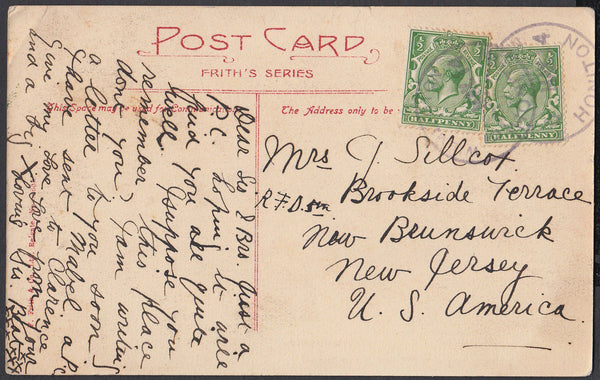 POST CARD
FRITH'S SERIES
This Space may be used for Communication
The Address only to be
HALFPENNY
HALFPENNY
HONITON
Dear Sis & Bro. Just a
P.C. hoping it will
find you are quite
well. I suppose you
remember this place
don't you. I am writing
a letter to you soon.
I have sent Mabel a P.C
Give my love to Clarence
and a from your
loving Sis
Mrs J. Sillcox
R.F.D. Brookside Terrace
New Brunswick
New Jersey
U. S. America.